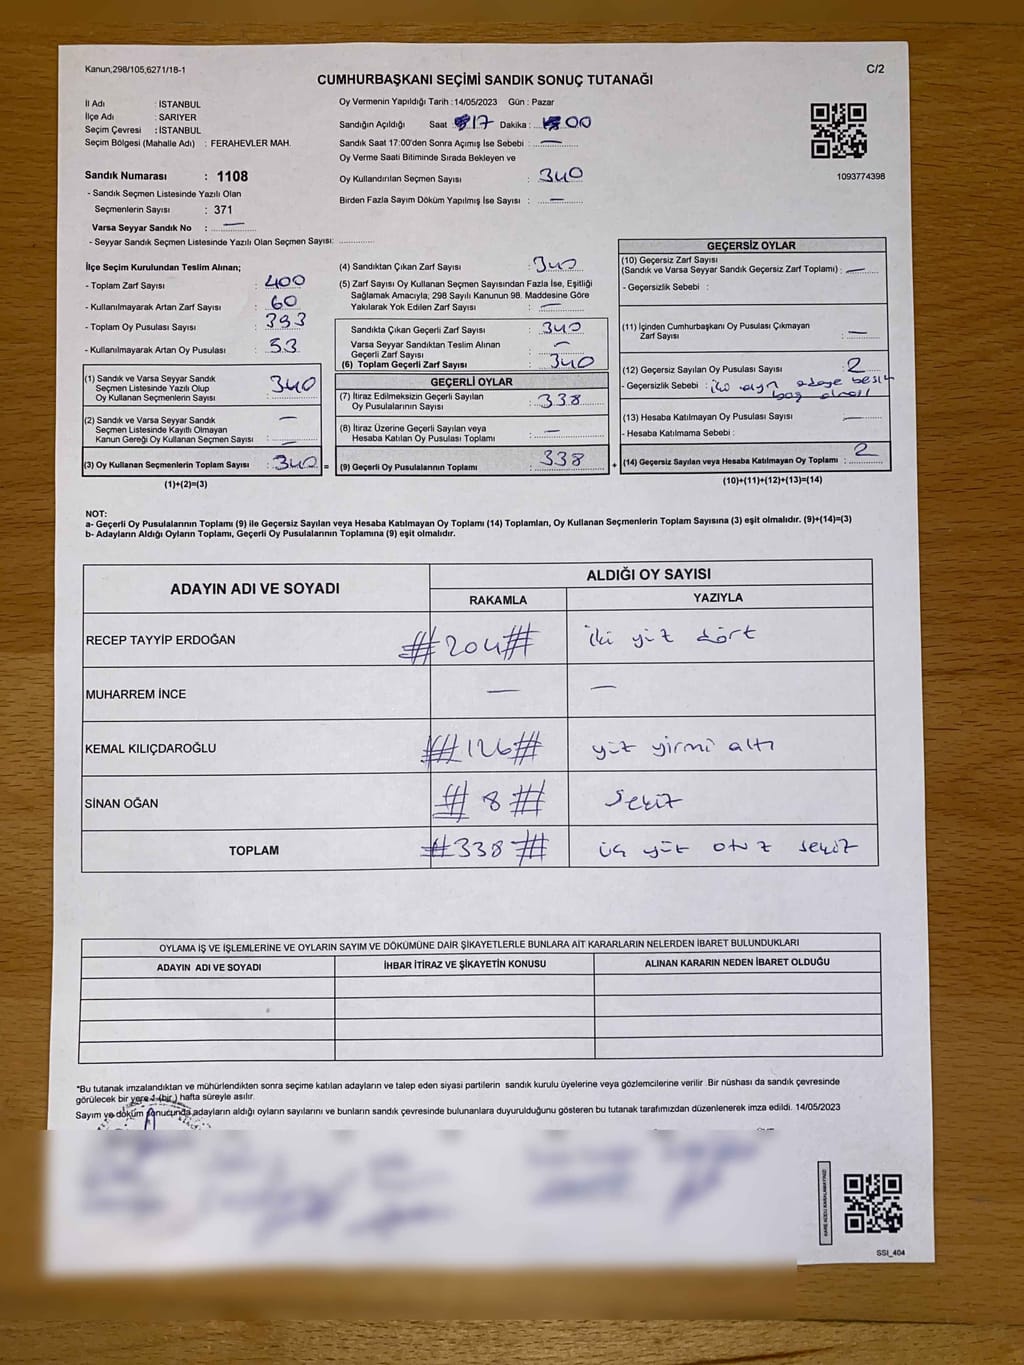 Kanun,298/105,6271/18-1
C/2
CUMHURBAŞKANI SEÇİMİ SANDIK SONUÇ TUTANAĞI
İl Adı : İSTANBUL
İlçe Adı : SARIYER
Seçim Çevresi : İSTANBUL
Seçim Bölgesi (Mahalle Adı) : FERAHEVLER MAH.
Sandık Numarası : 1108
- Sandık Seçmen Listesinde Yazılı Olan
Seçmenlerin Sayısı : 371
Varsa Seyyar Sandık No : —
- Seyyar Sandık Seçmen Listesinde Yazılı Olan Seçmen Sayısı: ............
Oy Vermenin Yapıldığı Tarih :14/05/2023 Gün : Pazar
Sandığın Açıldığı Saat 17 Dakika : 00
Sandık Saat 17:00'den Sonra Açılmış İse Sebebi : —
Oy Verme Saati Bitiminde Sırada Bekleyen ve
Oy Kullandırılan Seçmen Sayısı : 340
Birden Fazla Sayım Döküm Yapılmış İse Sayısı : —
1093774398
İlçe Seçim Kurulundan Teslim Alınan;
- Toplam Zarf Sayısı : 400
- Kullanılmayarak Artan Zarf Sayısı : 60
- Toplam Oy Pusulası Sayısı : 393
- Kullanılmayarak Artan Oy Pusulası : 53
(1) Sandık ve Varsa Seyyar Sandık
Seçmen Listesinde Yazılı Olup
Oy Kullanan Seçmenlerin Sayısı : 340
(2) Sandık ve Varsa Seyyar Sandık
Seçmen Listesinde Kayıtlı Olmayan
Kanun Gereği Oy Kullanan Seçmen Sayısı : —
(3) Oy Kullanan Seçmenlerin Toplam Sayısı : 340 =
(1)+(2)=(3)
(4) Sandıktan Çıkan Zarf Sayısı : 340
(5) Zarf Sayısı Oy Kullanan Seçmen Sayısından Fazla İse, Eşitliği
Sağlamak Amacıyla; 298 Sayılı Kanunun 98. Maddesine Göre
Yakılarak Yok Edilen Zarf Sayısı : —
Sandıkta Çıkan Geçerli Zarf Sayısı : 340
Varsa Seyyar Sandıktan Teslim Alınan
Geçerli Zarf Sayısı : —
(6) Toplam Geçerli Zarf Sayısı : 340
GEÇERLİ OYLAR
(7) İtiraz Edilmeksizin Geçerli Sayılan
Oy Pusulalarının Sayısı : 338
(8) İtiraz Üzerine Geçerli Sayılan veya
Hesaba Katılan Oy Pusulası Toplamı : —
(9) Geçerli Oy Pusulalarının Toplamı : 338 +
GEÇERSİZ OYLAR
(10) Geçersiz Zarf Sayısı
(Sandık ve Varsa Seyyar Sandık Geçersiz Zarf Toplamı) : —
- Geçersizlik Sebebi :
(11) İçinden Cumhurbaşkanı Oy Pusulası Çıkmayan
Zarf Sayısı : —
(12) Geçersiz Sayılan Oy Pusulası Sayısı : 2
- Geçersizlik Sebebi : iki ayrı adaya
(13) Hesaba Katılmayan Oy Pusulası Sayısı : —
- Hesaba Katılmama Sebebi :
(14) Geçersiz Sayılan veya Hesaba Katılmayan Oy Toplamı : 2
(10)+(11)+(12)+(13)=(14)
NOT:
a- Geçerli Oy Pusulalarının Toplamı (9) ile Geçersiz Sayılan veya Hesaba Katılmayan Oy Toplamı (14) Toplamları, Oy Kullanan Seçmenlerin Toplam Sayısına (3) eşit olmalıdır. (9)+(14)=(3)
b- Adayların Aldığı Oyların Toplamı, Geçerli Oy Pusulalarının Toplamına (9) eşit olmalıdır.
ADAYIN ADI VE SOYADI
ALDIĞI OY SAYISI
RAKAMLA YAZIYLA
RECEP TAYYİP ERDOĞAN #204# iki yüz dört
MUHARREM İNCE — —
KEMAL KILIÇDAROĞLU #126# yüz yirmi altı
SİNAN OĞAN #8# sekiz
TOPLAM #338# üç yüz otuz sekiz
OYLAMA İŞ VE İŞLEMLERİNE VE OYLARIN SAYIM VE DÖKÜMÜNE DAİR ŞİKAYETLERLE BUNLARA AİT KARARLARIN NELERDEN İBARET BULUNDUKLARI
ADAYIN ADI VE SOYADI İHBAR İTİRAZ VE ŞİKAYETİN KONUSU ALINAN KARARIN NEDEN İBARET OLDUĞU
*Bu tutanak imzalandıktan ve mühürlendikten sonra seçime katılan adayların ve talep eden siyasi partilerin sandık kurulu üyelerine veya gözlemcilerine verilir .Bir nüshası da sandık çevresinde
görülecek bir yere 1 (bir ) hafta süreyle asılır.
Sayım ve döküm sonucunda adayların aldığı oyların sayılarını ve bunların sandık çevresinde bulunanlara duyurulduğunu gösteren bu tutanak tarafımızdan düzenlenerek imza edildi. 14/05/2023
SSI_404